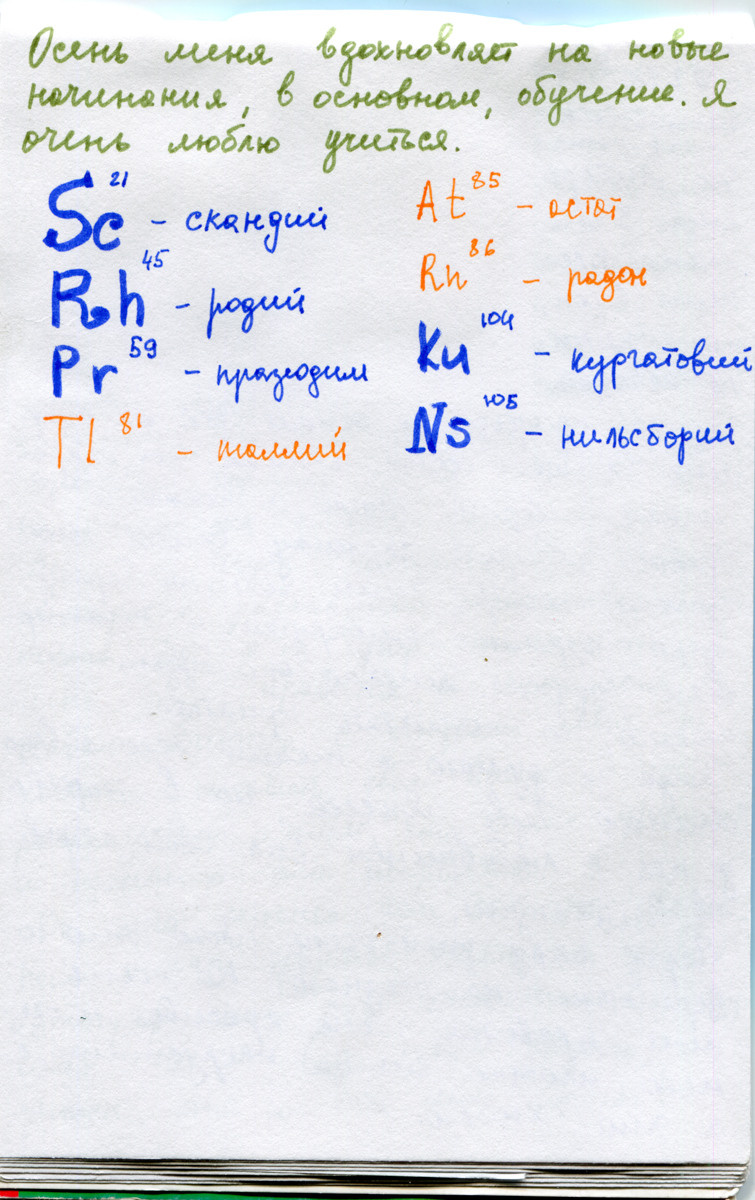 Осень меня вдохновляет на новые
начинания, в основном, обучение. Я
очень люблю учиться.
Sc 21 – скандий
Rh 45 – родий
Pr 59 – празеодим
Tl 81 – таллий
At 85 – астат
Rn 86 – радон
Ku 104 – курчатовий
Ns 105 – нильсборий